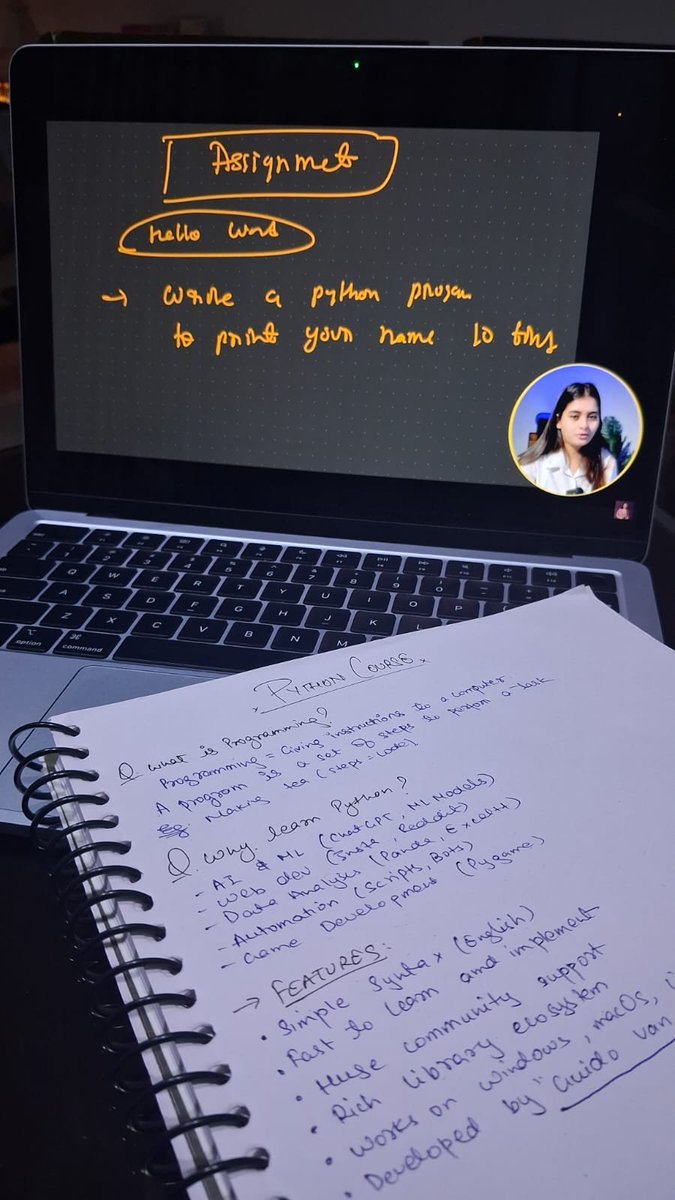 Assignmet
Hello Word
→ write a python progam
to print your name 10 tims
option
command
Q W E R T Y U I O P
A S D F G H J K L
Z X C V B N M
PYTHON COURSE
Q. What is Programming?
Programming = Giving instructions to a computer
A program is a set of steps to perform a task
Eg Making tea (steps = code)
Q. Why learn Python?
- AI & ML (ChatGPT, ML Models)
- Web dev (Insta, Reddit)
- Data Analysis (Panda, Excel)
- Automation (Scripts, Bots)
- Game Development (Pygame)
→ FEATURES:
• Simple Syntax (English)
• Fast to learn and implement
• Huge community support
• Rich library ecosystem
• Works on windows, macOs,
• Developed by "Guido van